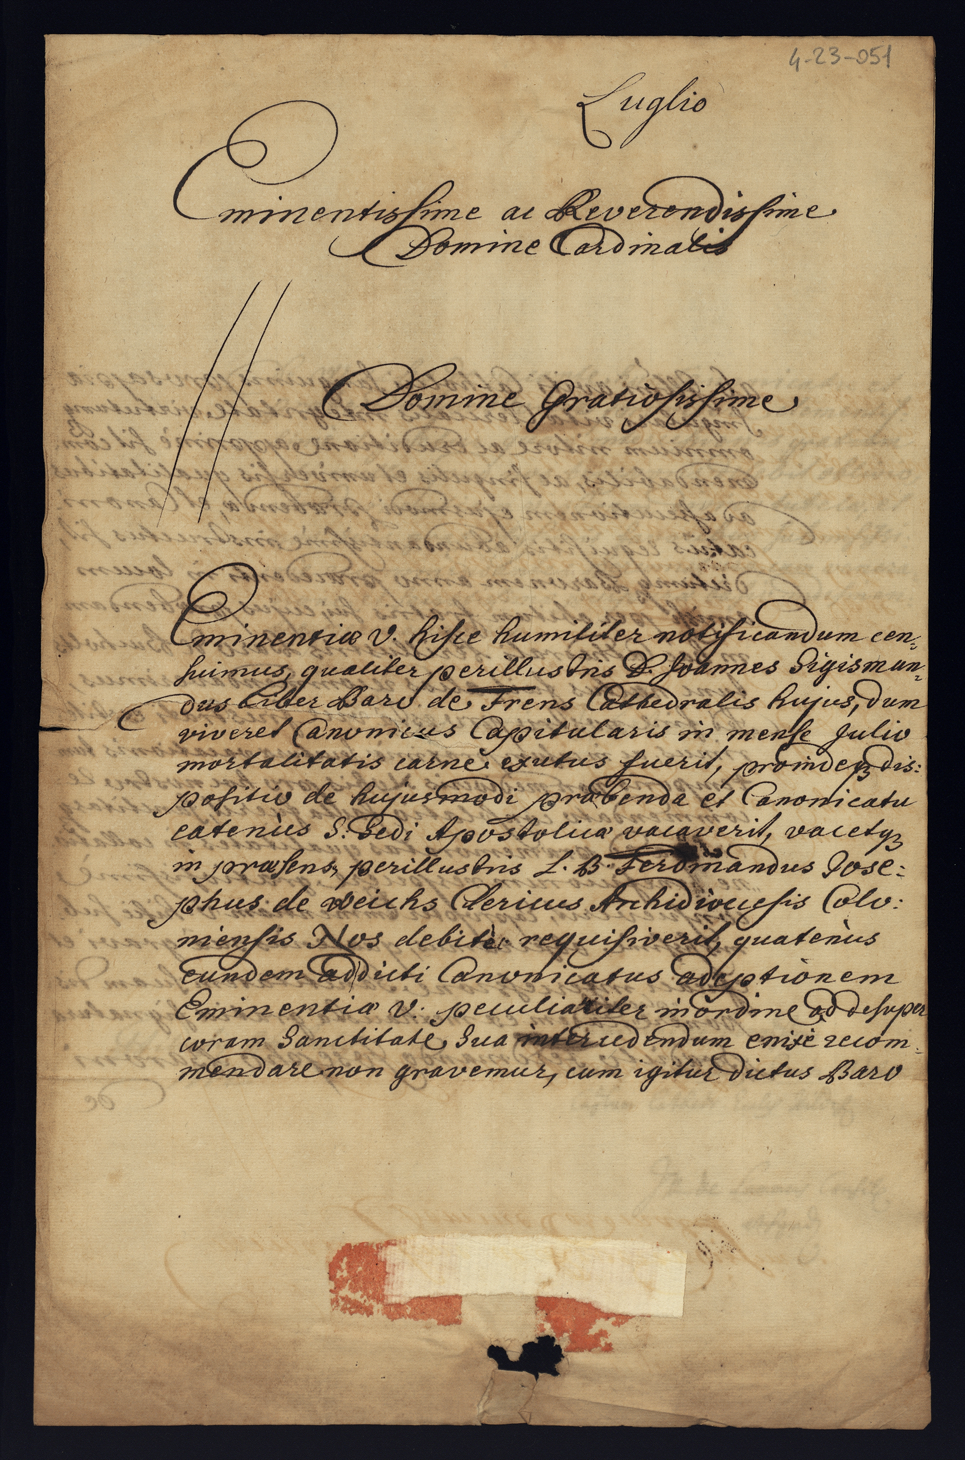 4-23-051
Luglio
Eminentissime ac Reverendissime
Domine Cardinalis
Domine Gratiosissime
Eminentiæ V. hisce humiliter notificandum cen-
suimus, qualiter perillustris D. Joannes Sigismun-
dus Liber Baro de Frens Cathedralis hujus, dum
viveret Canonicus Capitularis in mense Julio
mortalitatis carne exutus fuerit, proindeqz dis:
positio de hujusmodi præbenda et Canonicatu
eatenùs S: Sedi Apostolicæ vacaverit, vacetqz
in præsens, perillustris L. B. Ferdinandus Jose:
phus de Weichs Clericus Archidiœcesis Colo:
niensis Nos debitè requisiverit, quatenùs
eundem ad dicti Canonicatus adeptionem
Eminentiæ V: peculiariter in ordine ad desuper
coram Sanctitate Sua intercedendum enixè recom-
mendare non gravemur, cum igitur dictus Baro